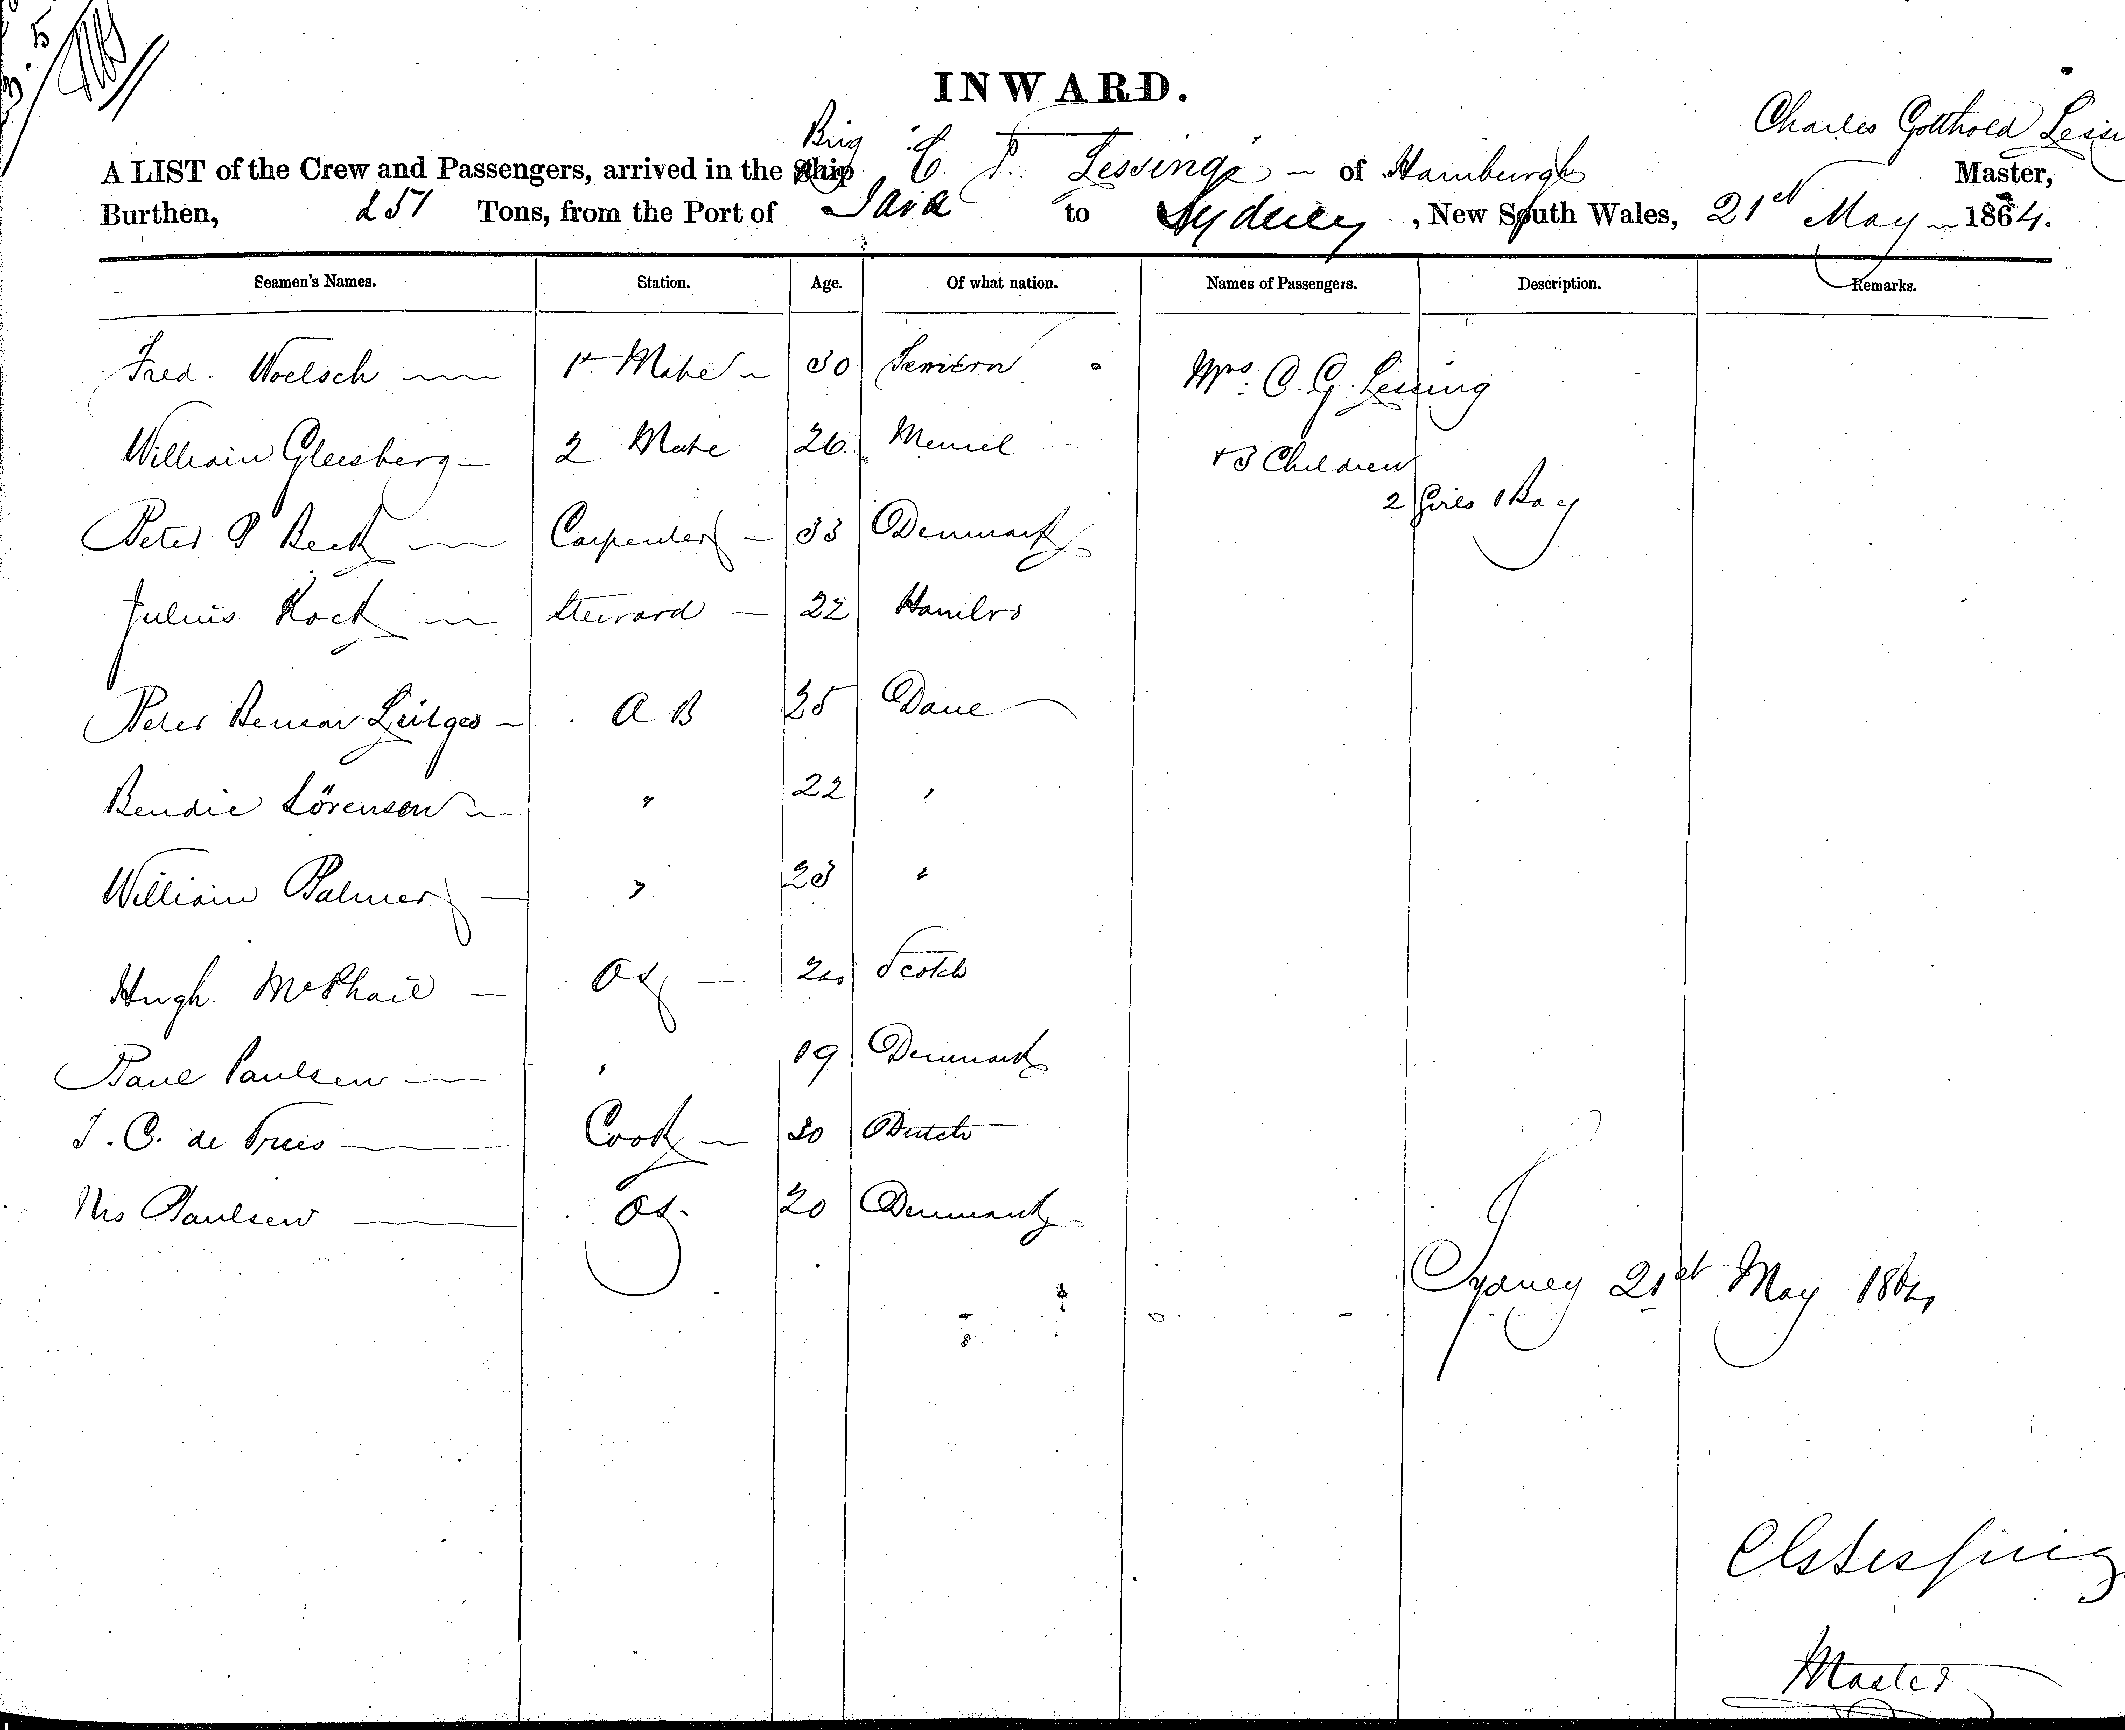 INWARD.
Brig
Charles Gotthold Lessi
A LIST of the Crew and Passengers, arrived in the Ship "C. F. Lessing" of Hamburgh Master,
Burthen, 251 Tons, from the Port of Java to Sydney, New South Wales, 21st May 1864.
Seamen's Names. Station. Age. Of what nation. Names of Passengers. Description. Remarks.
Fred. Woelsch 1st Mate 30 Mrs. C. G. Lessing
William Gleesberg 2 Mate 26 Memel + 3 Children
2 Girls 1 Boy
Peter P Beck Carpenter 33 Denmark
Julius Kock Steward 22 Hambro
Peter Lütges A B 25 Dane
Bendic Sörensen " 22 "
William Palmer " 23 "
Hugh McPhail OS 20 Scotch
Paul Paulsen " 19 Denmark
J. C. de Vries Cook 30 Dutch
Nis Paulsen OS. 20 Denmark
Sydney 21st May 1864
CGLessing
Master